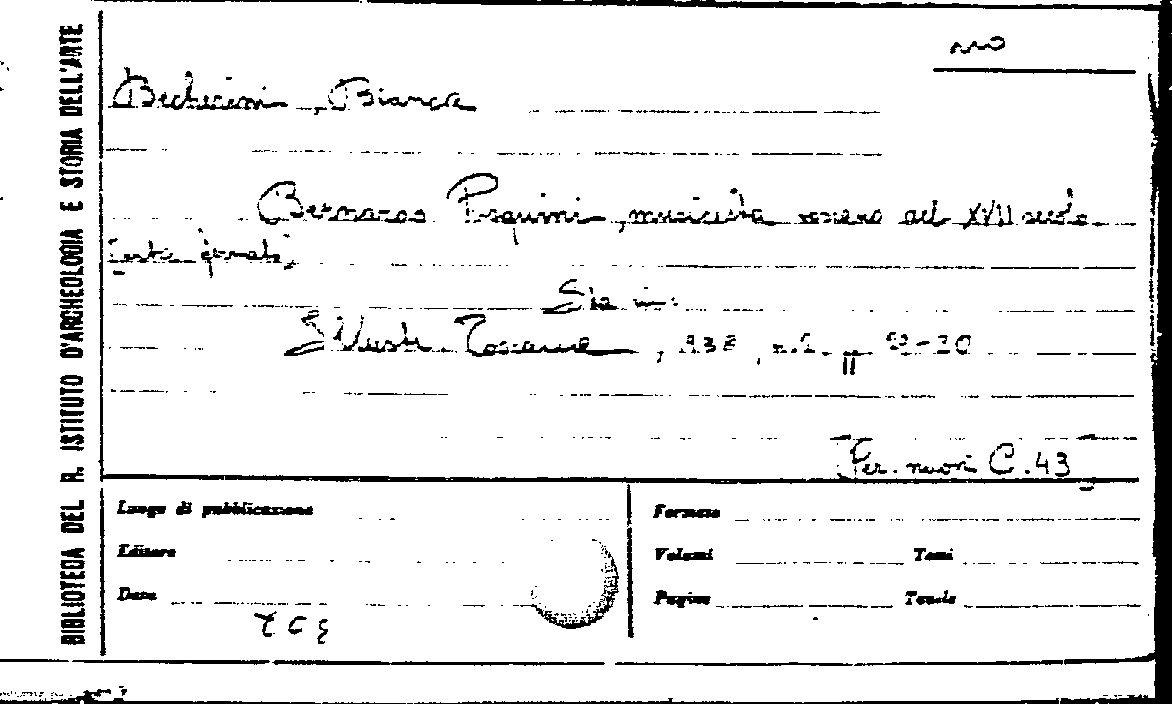 BIBLIOTECA DEL R. ISTITUTO D'ARCHEOLOGIA E STORIA DELL'ARTE
Becherini, Bianca
Bernardo Pasquini, musicista toscano del XVII secolo
Sta in:
Illustr. Toscana, n. pp
[Per. nuovi C.43]
Luogo di pubblicazione
Editore
Data
Formato
Volumi Tomi
Pagine Tavole